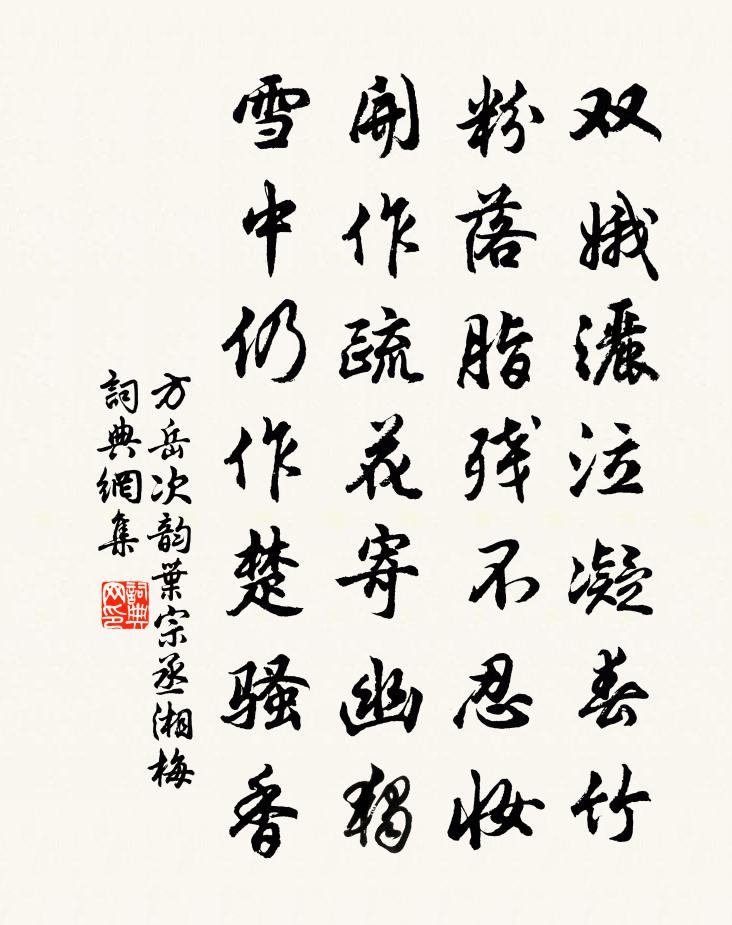 双娥灑泣凝春竹
粉落脂残不忍妆
開作疏花寄幽独
雪中仍作楚骚香
方岳次韵葉宗丞湘梅
詞典網集
詞典网印